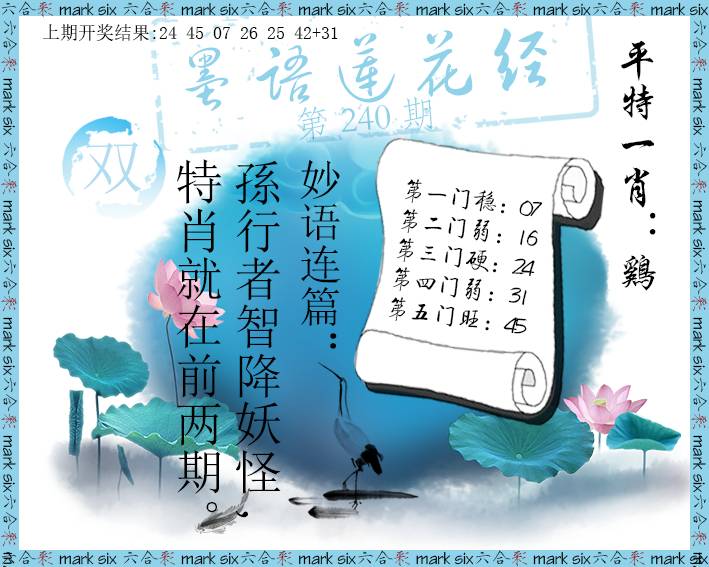 上期开奖结果:24 45 07 26 25 42+31
墨语莲花经
第 240 期
双
平特一肖：鷄
妙语连篇：
孫行者智降妖怪，
特肖就在前两期。
第一门稳：07
第二门弱：16
第三门硬：24
第四门弱：31
第五门旺：45
六合彩 mark six 六合彩 mark six 六合彩 mark six 六合彩 mark six 六合彩 mark six 六合彩